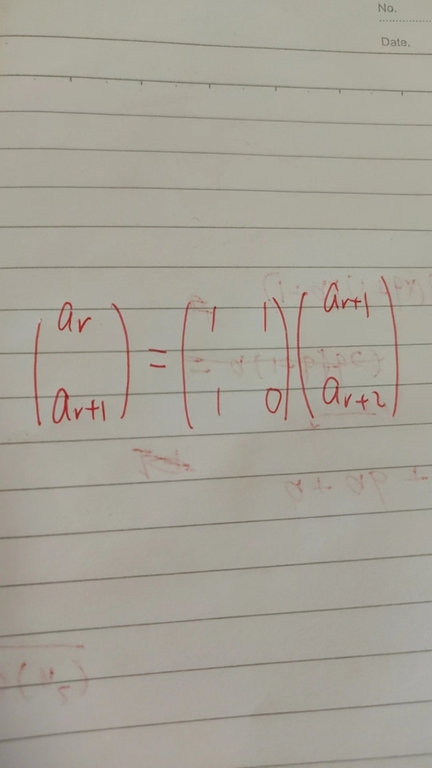 No.
Date.
(ar
ar+1) = (1 1
1 0) (ar+1
ar+2)